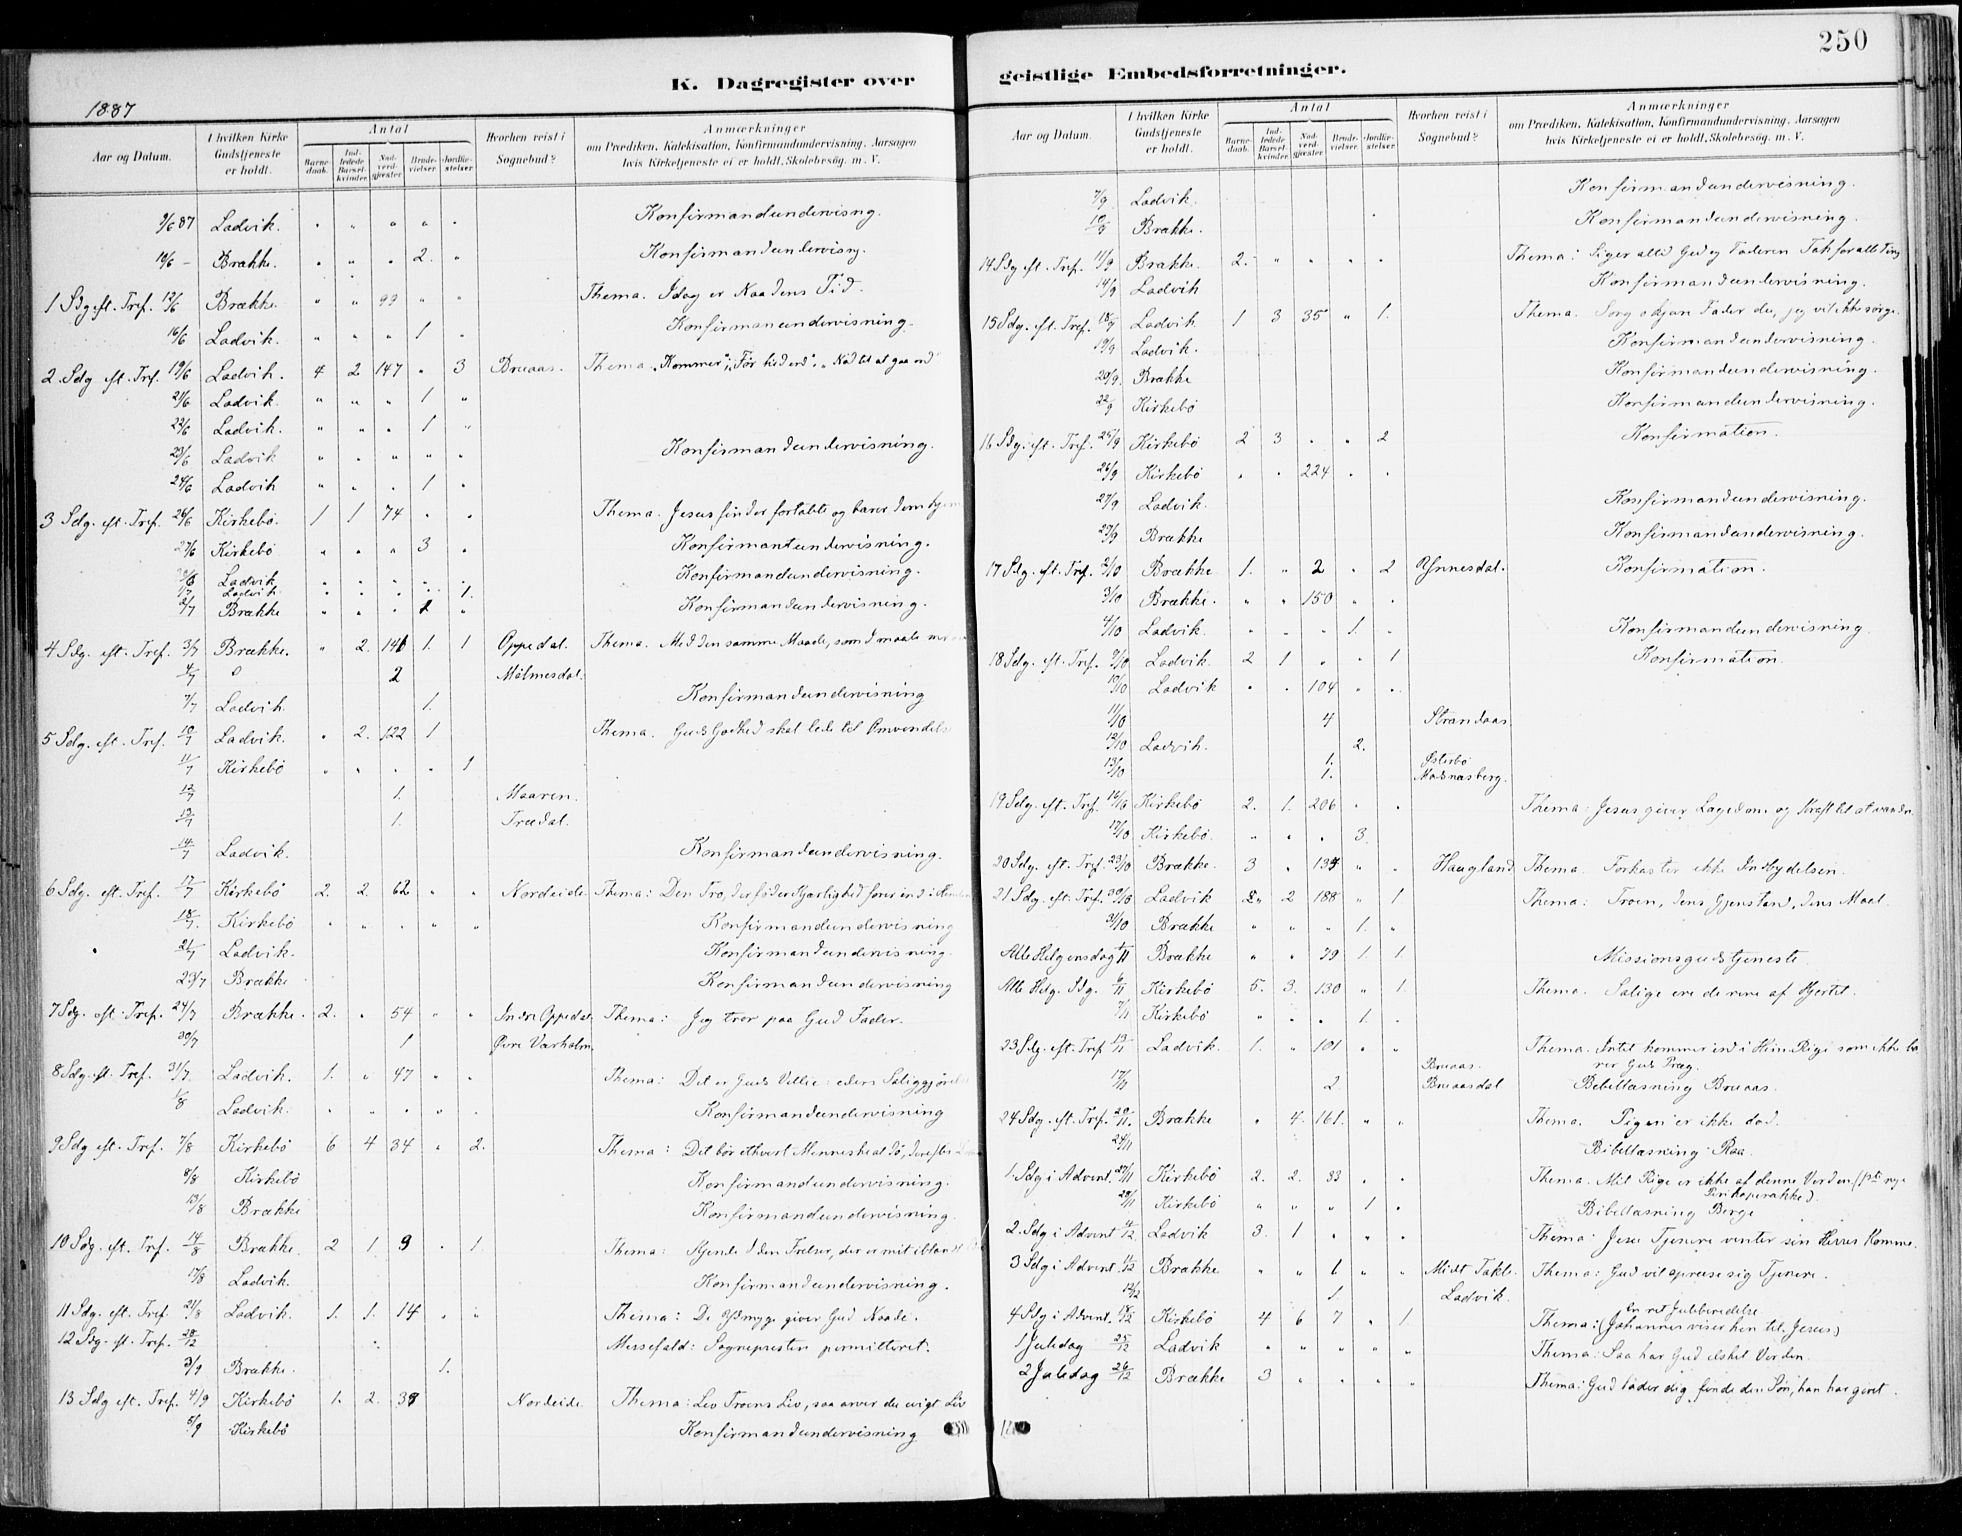 250
K. Dagregister over geistlige Embedsforretninger.
1887
Aar og Datum. I hvilken Kirke Gudstjeneste er holdt. Antal Barnedaab. Indledede Barselkvinder. Nadverdgjæster Brudevielser. Jordfæstelser Hvorhen reist i Sognebud? Anmærkninger om Prædiken, Katekisation, Konfirmandundervisning, Aarsagen hvis Kirketjeneste ei er holdt, Skolebesög. m. V.
9/6 87 Ladvik. " " " " " Konfirmandundervisng.
10/6 - Brække. " " " 2. " Konfirmandundervisng.
1 Sdg. eft. Tref. 12/6 Brække. " " 99 " " Thema. Idag er Naadens Tid.
16/6 Ladvik. " " " 1 " Konfirmanundervisning.
2. Sdg eft. Tref. 19/6 Ladvik. 4 2 147 " 3 Bruaas. Thema
21/6 Ladvik. " " " 1 "
22/6 Ladvik. " " " 1 "
23/6 Ladvik " " " " " Konfirmandundervisning.
24/6 Ladvik " " " 1 "
3 Sdg. eft. Tref. 26/6 Kirkebö. 1 1 74 " " Thema. Jesus finder fortabte og bærer dem hjem
27/6 Kirkebö " " " 3 " Konfirmantundervisning.
Ladvik " " " " " Konfirmandundervisning.
1/7 Ladvik " " " " 1.
2/7 Brække " " " 1 " Konfirmandundervisning.
4 Sdg. eft. Tref. 3/7 Brække. " 2. 141 1. 1 Oppedal. Thema. Med den samme Maade, som I maale
4/7 2 Mölmesdal.
7/7 Ladvik 1. Konfirmandundervisning
5 Sdg. eft. Tref. 10/7 Ladvik. " 2. 122 1 Thema. Guds Godhed skal lede til Omvendels
11/7 Kirkebö " " " " 1
12/7 1. Maaren.
13/7 1. Trædal.
14/7 Ladvik. Konfirmandundervisning.
6 Sdg. eft. Tref. 17/7 Kirkebö 2. 2 62 " " Nordeide Thema: Den Tro, der föder Kjærlighed förer ind i Himlen
18/7. Kirkebö " " " " " Konfirmandundervisning
21/7 Ladvik. Konfirmandundervisning.
23/7 Brække Konfirmandundervisning
7 Sdg. eft. Tref. 24/7 Brække. 2. " 54 " " Indre Oppedal Thema: Jeg tror paa Gud Fader.
30/7 1 Övre Værholm.
8 Sdg. eft. Tref. 31/7 Ladvik. 1. " 47 " " Thema: Det er Guds Villie: eders Saliggjörelse
1/8 Ladvik. " " " " " Konfirmandundervisning
9 Sdg eft. Tref. 7/8 Kirkebö 6 4 34 " 2. Thema: Det bör ethvert Menneske at dö, derefter
8/8 Kirkebö Konfirmandundervisning.
13/8 Brække Konfirmandundervisning.
10 Sdg. eft. Tref. 14/8 Brække. 2 1. 9 " 1. Thema: Kjende I den Frelser, der er mit iblandt
17/8 Ladvik. Konfirmandundervisning.
11 Sdg. eft. Tref 21/8 Ladvik. 1. 1. 14 " " Thema: De Ydmyge giver Gud Naade.
12 Sdg. eft. Tref. 28/12 Messefald: Sognepresten permitteret.
3/9 Brække. 1.
13 Sdg eft. Tref. 4/9 Kirkebö 1. 2. 38 Nordeide Thema: Lev Troens Liv, saa arver du evigt Liv
5/9 Kirkebö Konfirmandundervisning
Aar og Datum. I hvilken Kirke Gudstjeneste er holdt. Antal Barnedaab. Indledede Barselkvinder. Nadverdgjæster Brudevielser. Jordfæstelser. Hvorhen reist i Sognebud? Anmærkninger om Prædiken, Katekisation, Konfirmandundervisning, Aarsagen hvis Kirketjeneste ei er holdt, Skolebesög. m. V.
7/9 Ladvik. Konfirmandundervisning.
10/9 Brække. Konfirmandundervisning.
14 Sdg. eft. Tref. 11/9 Brække. 2. " " " " Thema: Siger altid Gud og Faderen Tak for alle Ting
14/9 Ladvik Konfirmandundervisning.
15 Sdg. eft. Tref. 18/9 Ladvik 1 3 35 " 1. Thema. Sörg o kjære Fader du, jeg vil ikke sörge.
19/9 Ladvik. Konfirmandundervisning.
20/9. Brække Konfirmandundervisning.
22/9 Kirkebö Konfirmandundervisning.
16 Sdg. eft. Tref. 25/9 Kirkebö 2 3 " " 2 Konfirmation.
26/9 Kirkebö " " 224 " "
27/9 Ladvik. Konfirmandundervisning.
29/9 Brække Konfirmandundervisning.
17 Sdg. eft. Tref. 2/10 Brække 1. " 2 " 2 Ynnesdal. Konfirmation.
3/10 Brække. " " 150 " "
4/10 Ladvik. " " " 1. " Konfirmandundervisning.
18 Sdg. eft. Tref 9/10 Ladvik. 2 1 " " 1 Konfirmation.
10/10 Ladvik " " 104 " "
11/10 4 Strandaas.
12/10 Ladvik. 2.
13/10 1. Österbö
1. Masnæsberg.
19 Sdg. eft. Tref 16/10 Kirkebö 2. 1. 206 " " Thema: Jesus giver Lægedom og Kraft til at vandre
17/10 Kirkebö. " " " 3
20 Sdg. eft. Tref. 23/10 Brække. 3 " 134 " " Haugland Thema. Forkaster ikke Indbydelsen.
21 Sdg. eft. Tref. 30/10 Ladvik " 2 188 " 1. Thema: Troen, dens Gjenstand, dens Maal.
31/10 Brække " " " 1. "
Alle Helgensdag 1/11 Brække " " 39 1 1. Missionsgudstjeneste.
Alle Helg. Sdg. 6/11 Kirkebö 5. 3. 130 " 1. Thema. Salige ere de rene af Hjertet.
7/11 Kirkebö " " " 1.
23 Sdg. eft. Tref 13/11 Ladvik. 1. " 101 " " Thema. Intet kommer ind i Him. Rige som ikke bærer Guds Præg.
17/11 2 Bruaas. Bruaasdal Bibellæsning Bruaas.
24 Sdg. eft. Tref. 20/11. Brække " 4. 161. " " Thema. Pigen er ikke död.
24/11 Bibellæsning Raa
1. Sdg i Advent. 27/11 Kirkebö 2. 2. 33 " " Thema. Mit Rige er ikke af denne Verden (1ste nye Perikoperække).
28/11 Kirkebö " " " 1 " Bibellæsning Berge
2. Sdg i Advent 4/12 Ladvik 3. 1 " " " Thema: Jesu Tjenere venter sin Herres Komme.
3 Sdg i Advent. 11/12 Brække " " 1 " " Midt Takle Thema: Gud vil opreise sig Tjenere.
12/12 1 Ladvik.
4 Sdg i Advent 18/12 Kirkebö 4 6 7 " 1. Thema: En ret Juleberedelse (Johannes viser hen til Jesus)
1 Juledag 25/12 Ladvik " " " " " Thema: Saa har Gud elsket Verden.
2 Juledag 26/12 Brække 3 " " " " Thema: Gud lader dig finde den Sön, han har givet.